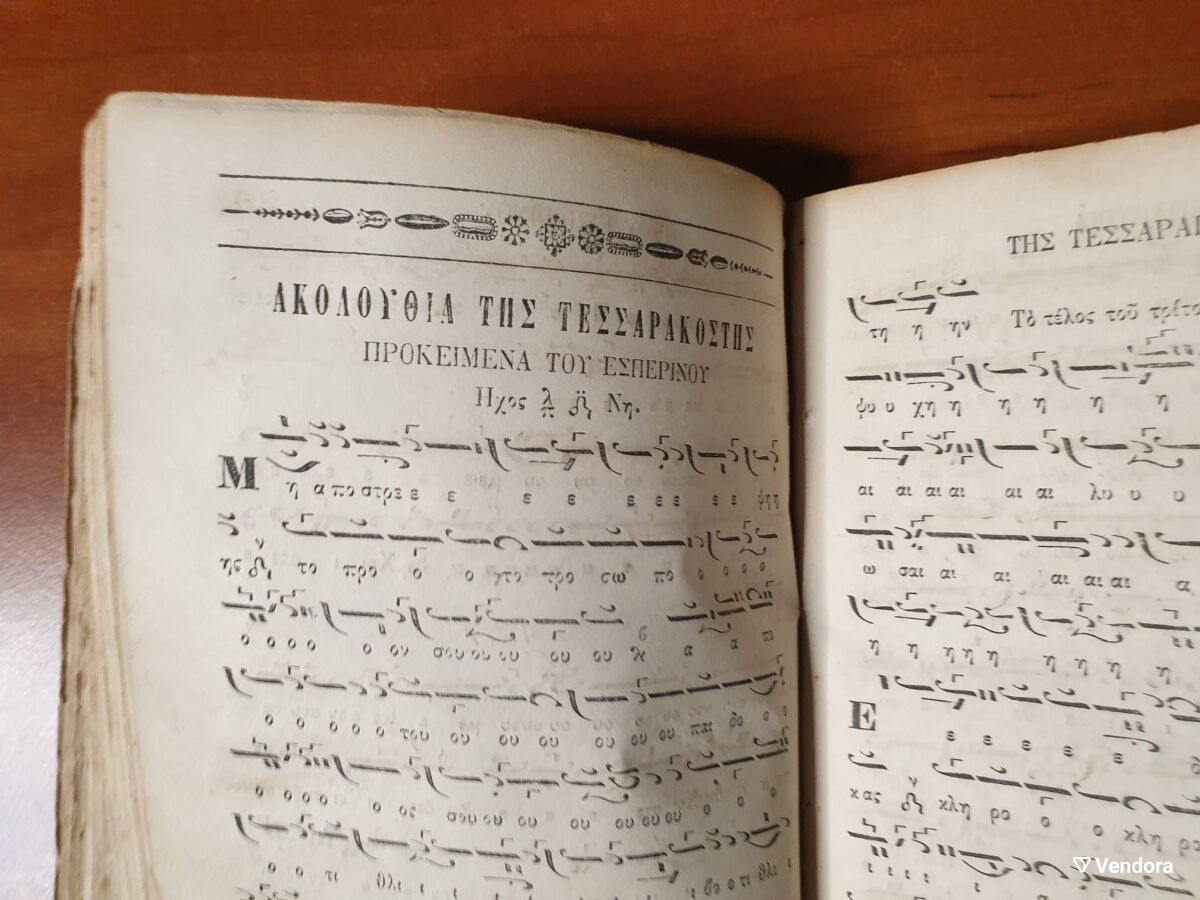 ΑΚΟΛΟΥΘΙΑ ΤΗΣ ΤΕΣΣΑΡΑΚΟΣΤΗΣ
ΠΡΟΚΕΙΜΕΝΑ ΤΟΥ ΕΣΠΕΡΙΝΟΥ
Ηχος Νη.
Μ η α πο στρε ε ε ε ε ε ε ε ε ε ψη η
ης το προ ο ο γτο προ σω πο ο ο ο
ο ο ο ο ο ον σου ου ου ου ου α α πο
ο ο ο ο ο του ου ου ου ου ου ου παι δο ο ο
ο ο ο ο ο ος σου ου ου ου ου ου ου ο ο ο
ο ο τι θλι ι ι ι βο ο τι θλι ι
ΤΗΣ ΤΕΣΣΑΡΑ
τη η ην Τὸ τέλος τοῦ τρίτο
ψυ υ χη η η η η
αι αι αι αι αι αι λυ υ υ
ω σαι αι αι αι αι αι α
η η η η η η η η η
Ε ε ε ε ε ε
κας κλη ρο ο ο κλη ρ
ι ι ι ι ι
Vendora